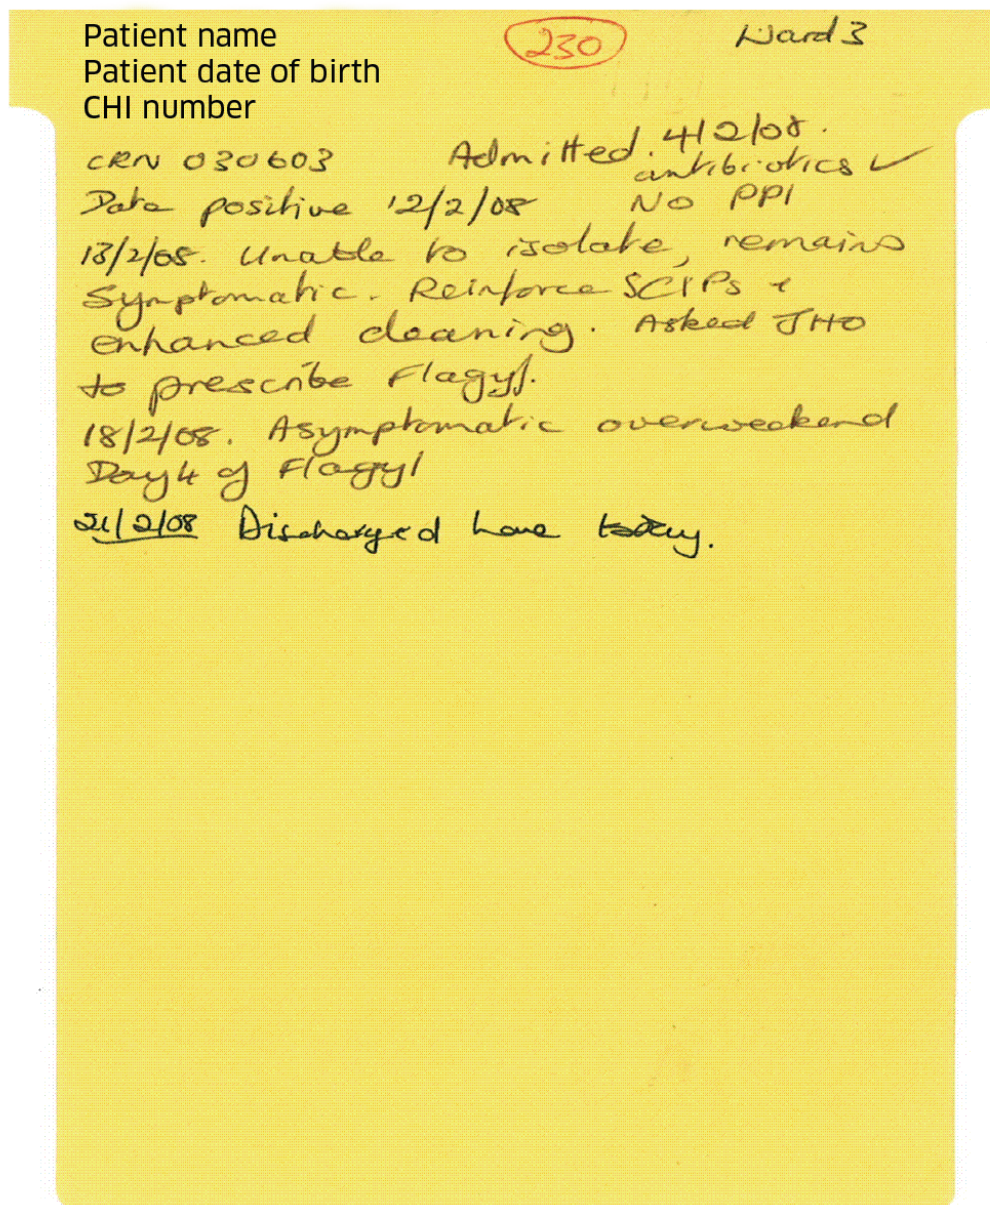 Patient name
230
Ward 3
Patient date of birth
CHI number
CRN 030603
Admitted. 4/2/08.
antibiotics ✓
Date positive 12/2/08
No PPI
13/2/08. Unable to isolate, remains
Symptomatic. Reinforce SCIPs +
enhanced cleaning. Asked JHO
to prescribe Flagyl.
18/2/08. Asymptomatic over weekend
Day 4 of Flagyl
21/2/08 Discharged home today.